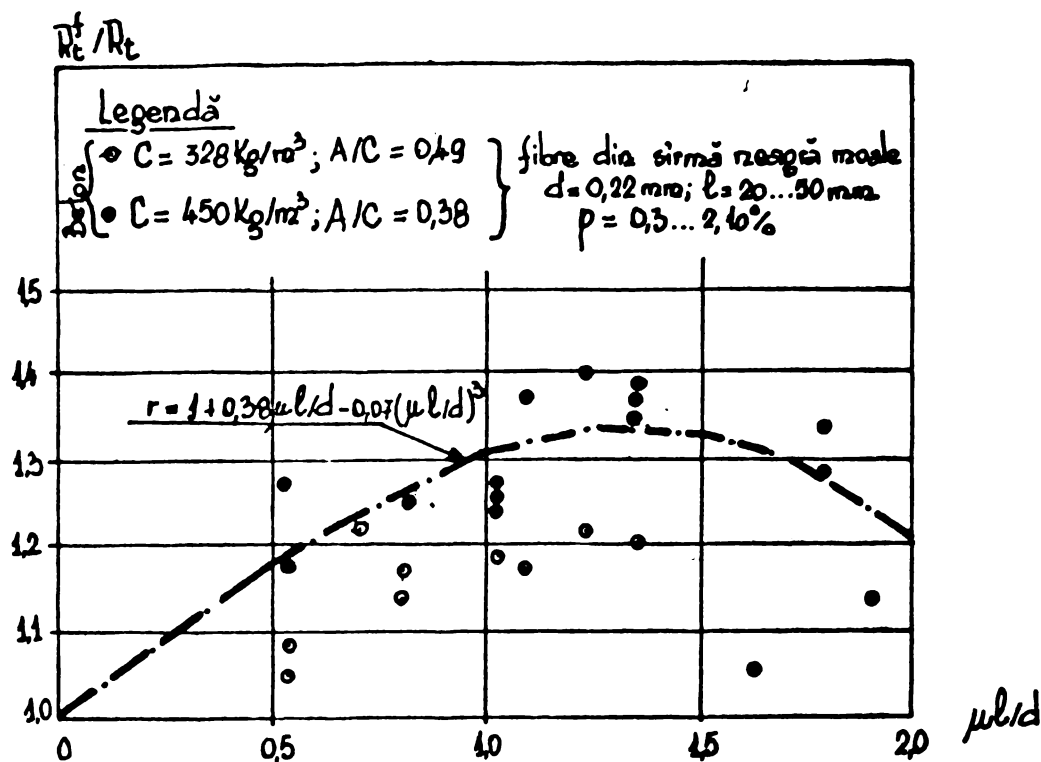 R_t^f/R_t
Legendă
Beton
C = 328 Kg/m³; A/C = 0,49
C = 450 Kg/m³; A/C = 0,38
fibre din sîrmă neagră moale
d = 0,22 mm; l = 20...50 mm
p = 0,3... 2,10%
1,5
1,4
r = 1 + 0,38 μl/d - 0,07(μl/d)³
1,3
1,2
1,1
1,0
0 0,5 1,0 1,5 2,0 μl/d